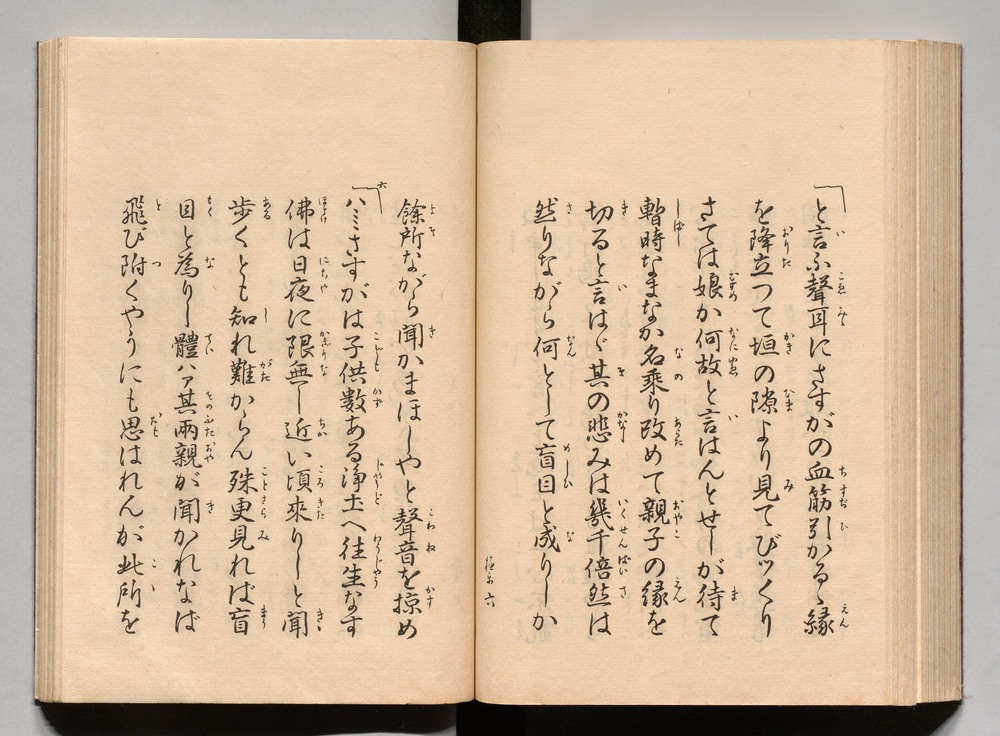 と言ふ聲耳にさすがの血筋引かるゝ縁
を降立つて垣の隙より見てびツくり
さては娘か何故と言はんとせしが待て
暫時なまなか名乘り改めて親子の縁を
切ると言はゞ其の悲みは幾千倍然は
然りながら何として盲目と成りしか
六
餘所ながら聞かまほしやと聲音を掠め
六
ハミさすがは子供數ある淨土へ往生なす
佛は日夜に限無し近い頃來りしと聞
歩くとも知れ難からん殊更見れば盲
目と為りし體ハァ其兩親が聞かれなば
飛び附くやうにも思はれんが此所を